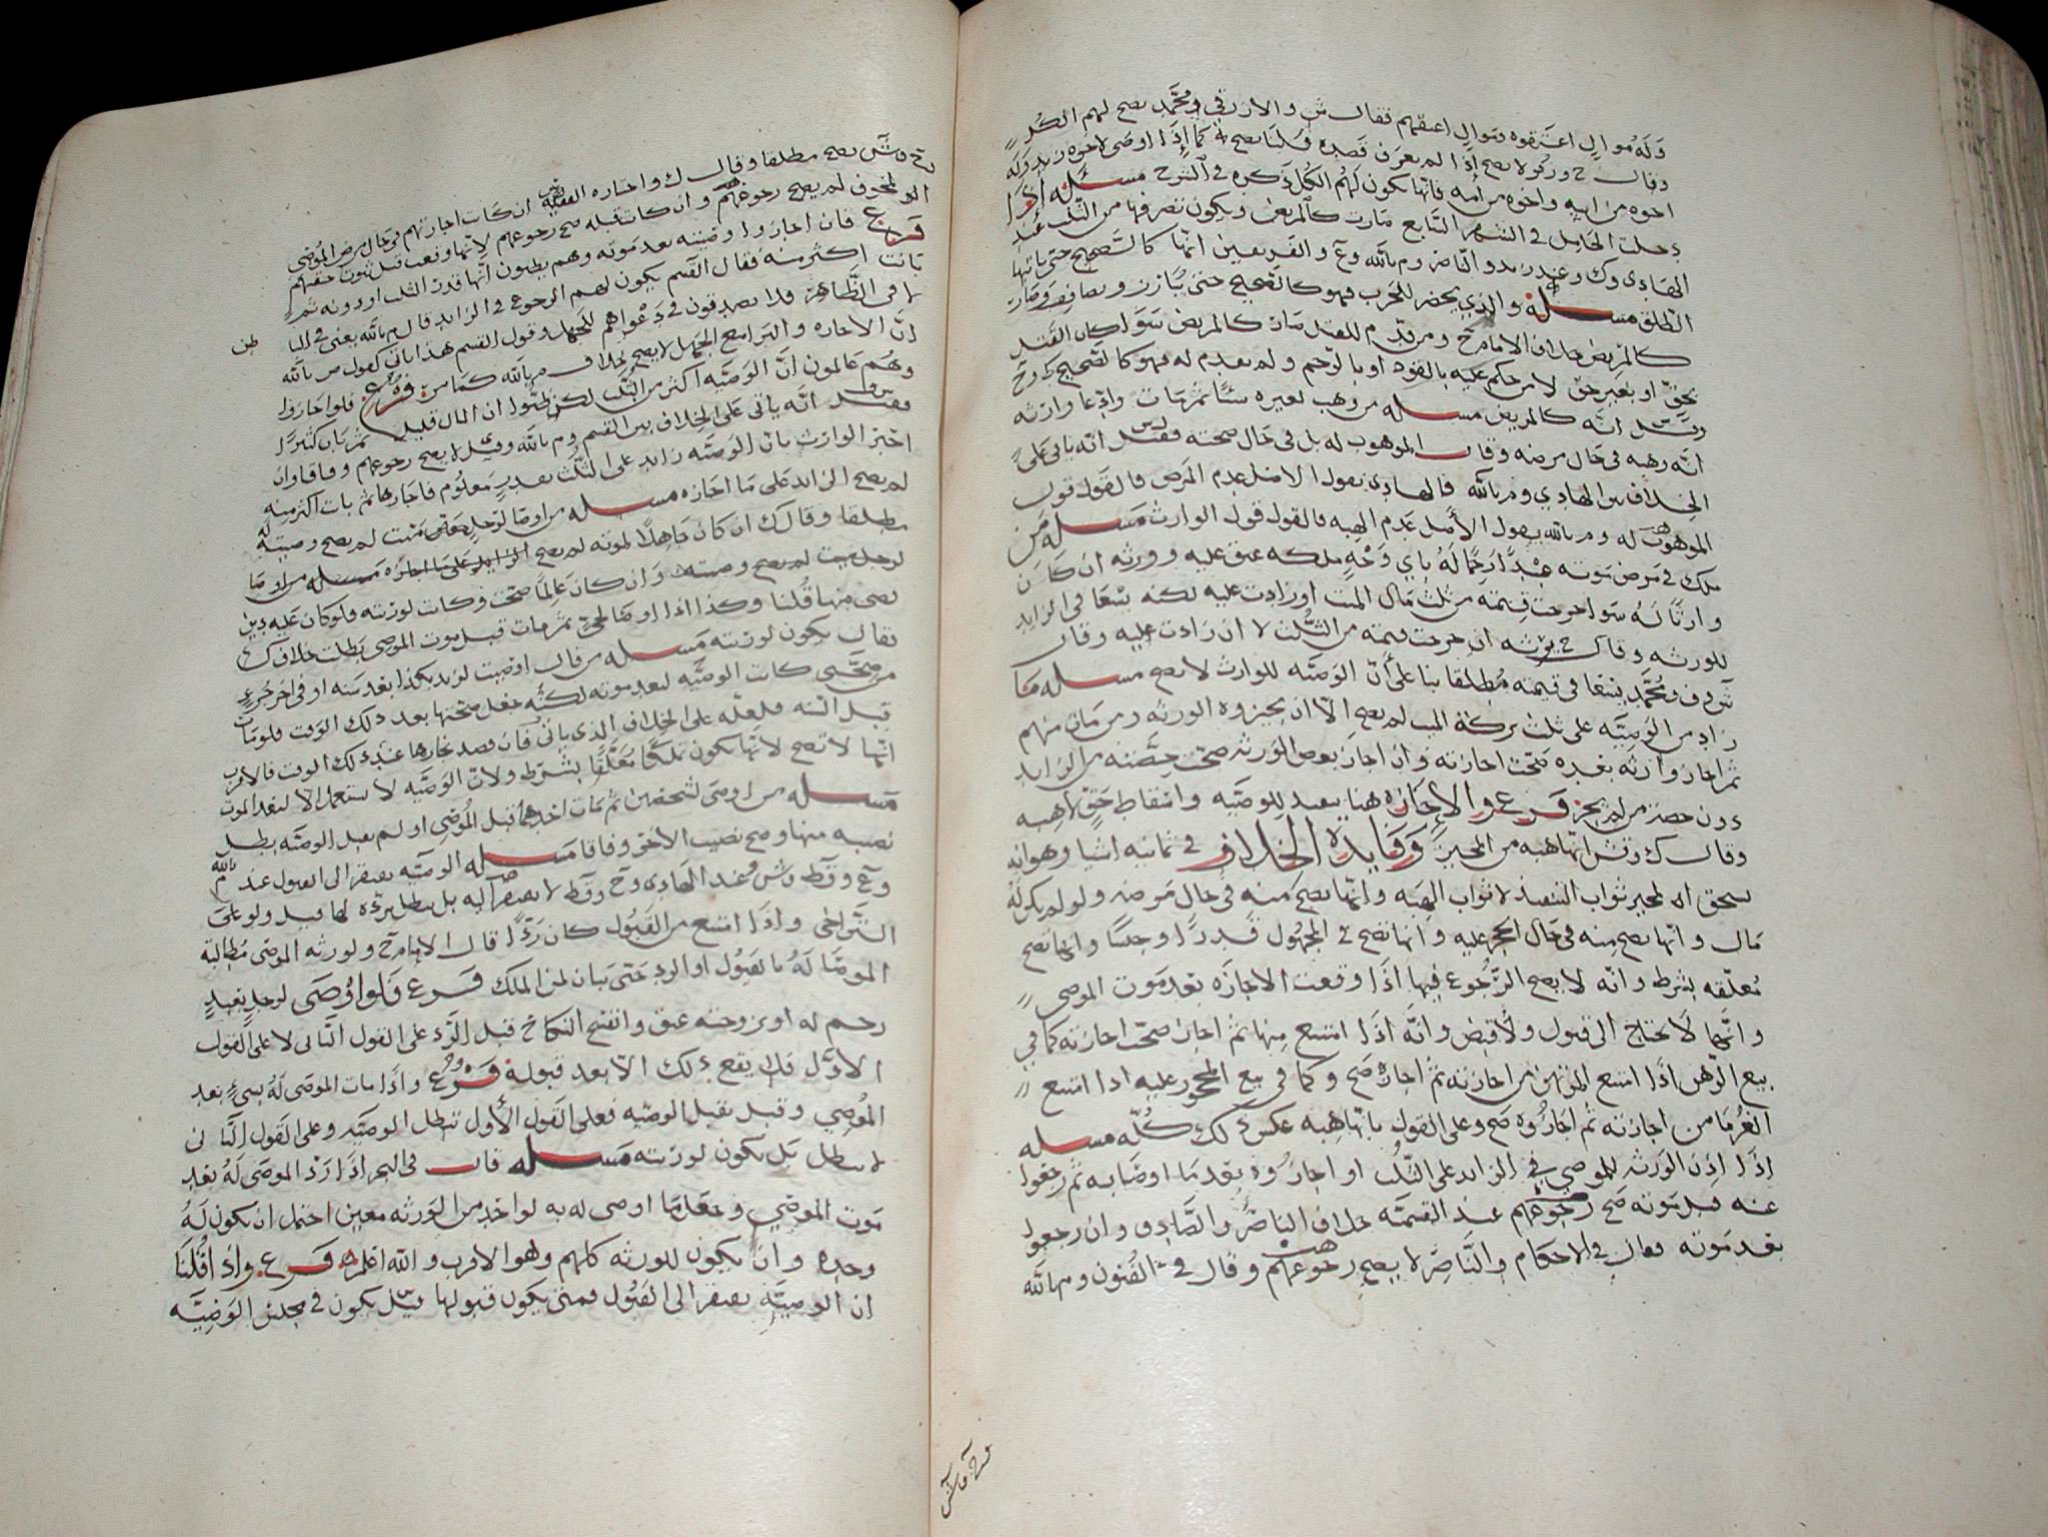 وله موالٍ اعتقوه وموالٍ اعتقهم فقال ش والازرقي ومحمد يصح لهم الكل
وقال ح وركو لا يصح اذا لم يعرف قصده قلنا يصح كما اذا اوصى لاخوة زيد وله
اخوه من ابيه واخوه من امه فانها يكون لهم الكل ذكره في الشرح مسئله اذا
دخلت الحامل في الشهر السابع صارت كالمريض ويكون تصرفها من الثلث عند
الهادي وك وعند والناصر وم بالله وع والفريقين انها كالصحيح حتى ياتيها
الطلق مسله والذي يحضر للحرب فهو كالصحيح حتى يبارز ويصافف وصار
كالمريض خلاف الامام ح ومن قدم للقتل صار كالمريض سوا كان القتل
بحق او بغير حق لا من حكم عليه بالقود او بالرجم ولم يقدم له فهو كالصحيح ك وح
وقيل انه كالمريض مسله من وهب لغيره شيا ثم مات وادعا وارثه
انه وهبه في حال مرضه وقال الموهوب له بل في حال صحته فقيل انه ياتي على
الخلاف بين الهادي وم بالله فالهادي يقول الاصل عدم المرض فالقول قول
الموهوب له وم بالله يقول الاصل عدم الهبه فالقول قول الوارث مسله من
ملك في مرض موته عبدا رحما له باي وجه ملكه عتق عليه وورثه ان كان
وارثا له سوا خرجت قيمته من ثلث مال الميت او زادت عليه لكنه يسعا في الزايد
للورثه وقال ح يورثه ان خرجت قيمته من الثلث لا ان زادت عليه وقال
ش وف ومحمد يسعا في قيمته مطلقا بنا على ان الوصيه للوارث لا تصح مسله ما
زاد من الوصيه على ثلث تركة الميت لم يصح الا ان يجيزوه الورثه ومن مات منهم
ثم اجاز وارثه بعده صحت اجازته وان اجاز بعض الورثه صحت حصته من الزايد
دون حصة من لم يجز فرع والاجازه هنا تنفيذ للوصيه واسقاط حق لا هبه
وقال ك وش انها هبه من المجيز وفايدة الخلاف في ثمانيه اشيا وهو انه
يستحق المجيز ثواب التنفيذ لا ثواب الهبه وانها تصح منه في حال مرضه ولو لم يكن له
مال وانها تصح منه في حال الحجر عليه وانها تصح في المجهول قدرا وجنسا وانها تصح
معلقه بشرط وانه لا يصح الرجوع فيها اذا وقعت الاجازه بعد موت الموصي
وانها لا تحتاج الى قبول ولا قبض وانه اذا امتنع منها ثم اجاز صحت اجازته كما في
بيع الرهن اذا امتنع المرتهن من اجازته ثم اجازه صح وكما في بيع المحجور عليه اذا امتنع
الغرما من اجازته ثم اجازوه صح وعلى القول بانها هبه عكس ذلك كله مسله
اذا اذن الورثه للموصي في الزايد على الثلث او اجازوه بعد ما اوصا به ثم رجعوا
عنه قبل موته صح رجوعهم عند القسميه خلاف الناصر والصادق وان رجعوا
بعد موته فقال في الاحكام والناصر لا يصح رجوعهم وقال في الفنون وم بالله
وح وش يصح مطلقا وقال ك واختاره الفقيه ان كانت اجازتهم في حال مرض الموصي
المخوف لم يصح رجوعهم وان كانت قبله صح رجوعهم لانها وقعت قبل ثبوت حقهم
فرع فان اجازوا وصيته بعد موته وهم يظنون انها قدر الثلث او دونه ثم
بانت اكثر منه فقال القسم يكون لهم الرجوع في الزايد قال م بالله يعني في البا
طن
لا في الظاهر فلا يصدقون في دعواهم للجهل وقول القسم هذا ياتي كقول م بالله
ان الاجازه والبرا مع الجهل لا يصح خلاف م بالله كما مر فرع فلو اجازوا
وهم عالمون ان الوصيه اكثر من الثلث لكن ظنوا ان المال قليل ثم بان كثيرا
فقيل انه ياتي على الخلاف بين القسم وم بالله وقيل لا يصح رجوعهم وفاقا وان
اخبر الوارث بان الوصيه زايده على الثلث بقدر معلوم فاجازها ثم بانت اكثر منه
لم يصح الزايد على ما اجازه مسله من اوصا لرجل ميت لم يصح وصيته له
مطلقا وقال ك ان كان جاهلا لموته لم يصح الزايد على ما اجازه مسله من اوصا
لرجل ميت لم يصح وصيته وان كان عالما صحت وكانت لورثته فلو كان عليه دين
يقضى منها قلنا وكذا اذا اوصا لحي ثم مات قبل موت الموصي بطلت خلاف ك
فقال يكون لورثته مسله من قال اوصيت لزيد بكذا بعد سنه او في اخر جزء
من صحتي كانت الوصيه لبعد موته لكنه جعل صحتها بعد ذلك الوقت فلو مات
قبل السنه فلعله على الخلاف الذي ياتي فان قصد نجازها عند ذلك الوقت فالاقرب
انها لا تصح لانها يكون تمليكا معلقا بشرط ولان الوصيه لا تستعمل الا لبعد الموت
مسله من اوصى لشخصين ثم مات احدهما قبل الموصي او لم يقبل الوصيه بطل
نصيبه منها وصح نصيب الاخر وفاقا مسله الوصيه يفتقر الى القبول عند م بالله
وع وقط وش وعند الهادي وح وقط لا يفتقر اليه بل يبطل برده لها قيل ولو على
التراخي واذا امتنع من القبول كان ردا قال الامام ح ولورثه الموصي مطالبة
الموصا له بالقبول او الرد حتى يبان لمن الملك فرع فلو اوصى لرجل بعبد
رحم له او بزوجته عتق وانفسخ النكاح قبل الرد على القول الثاني لا على القول
الاول فلا يقع ذلك الا بعد قبوله فرع واذا مات الموصى له بشيء بعد
الموصي وقبل يقبل الوصيه فعلى القول الاول تبطل الوصيه وعلى القول الثاني
لا تبطل بل يكون لورثته مسله قال في البحر اذا رد الموصى له بعد
موت الموصي وجعل ما اوصى له به لواحد من الورثه معين احتمل ان يكون له
وحده وان يكون للورثه كلهم وهو الاقرب والله اعلم فرع واذا قلنا
ان الوصيه يفتقر الى القبول فمتى يكون قبولها قيل يكون في مجلس الوصيه
وح وش